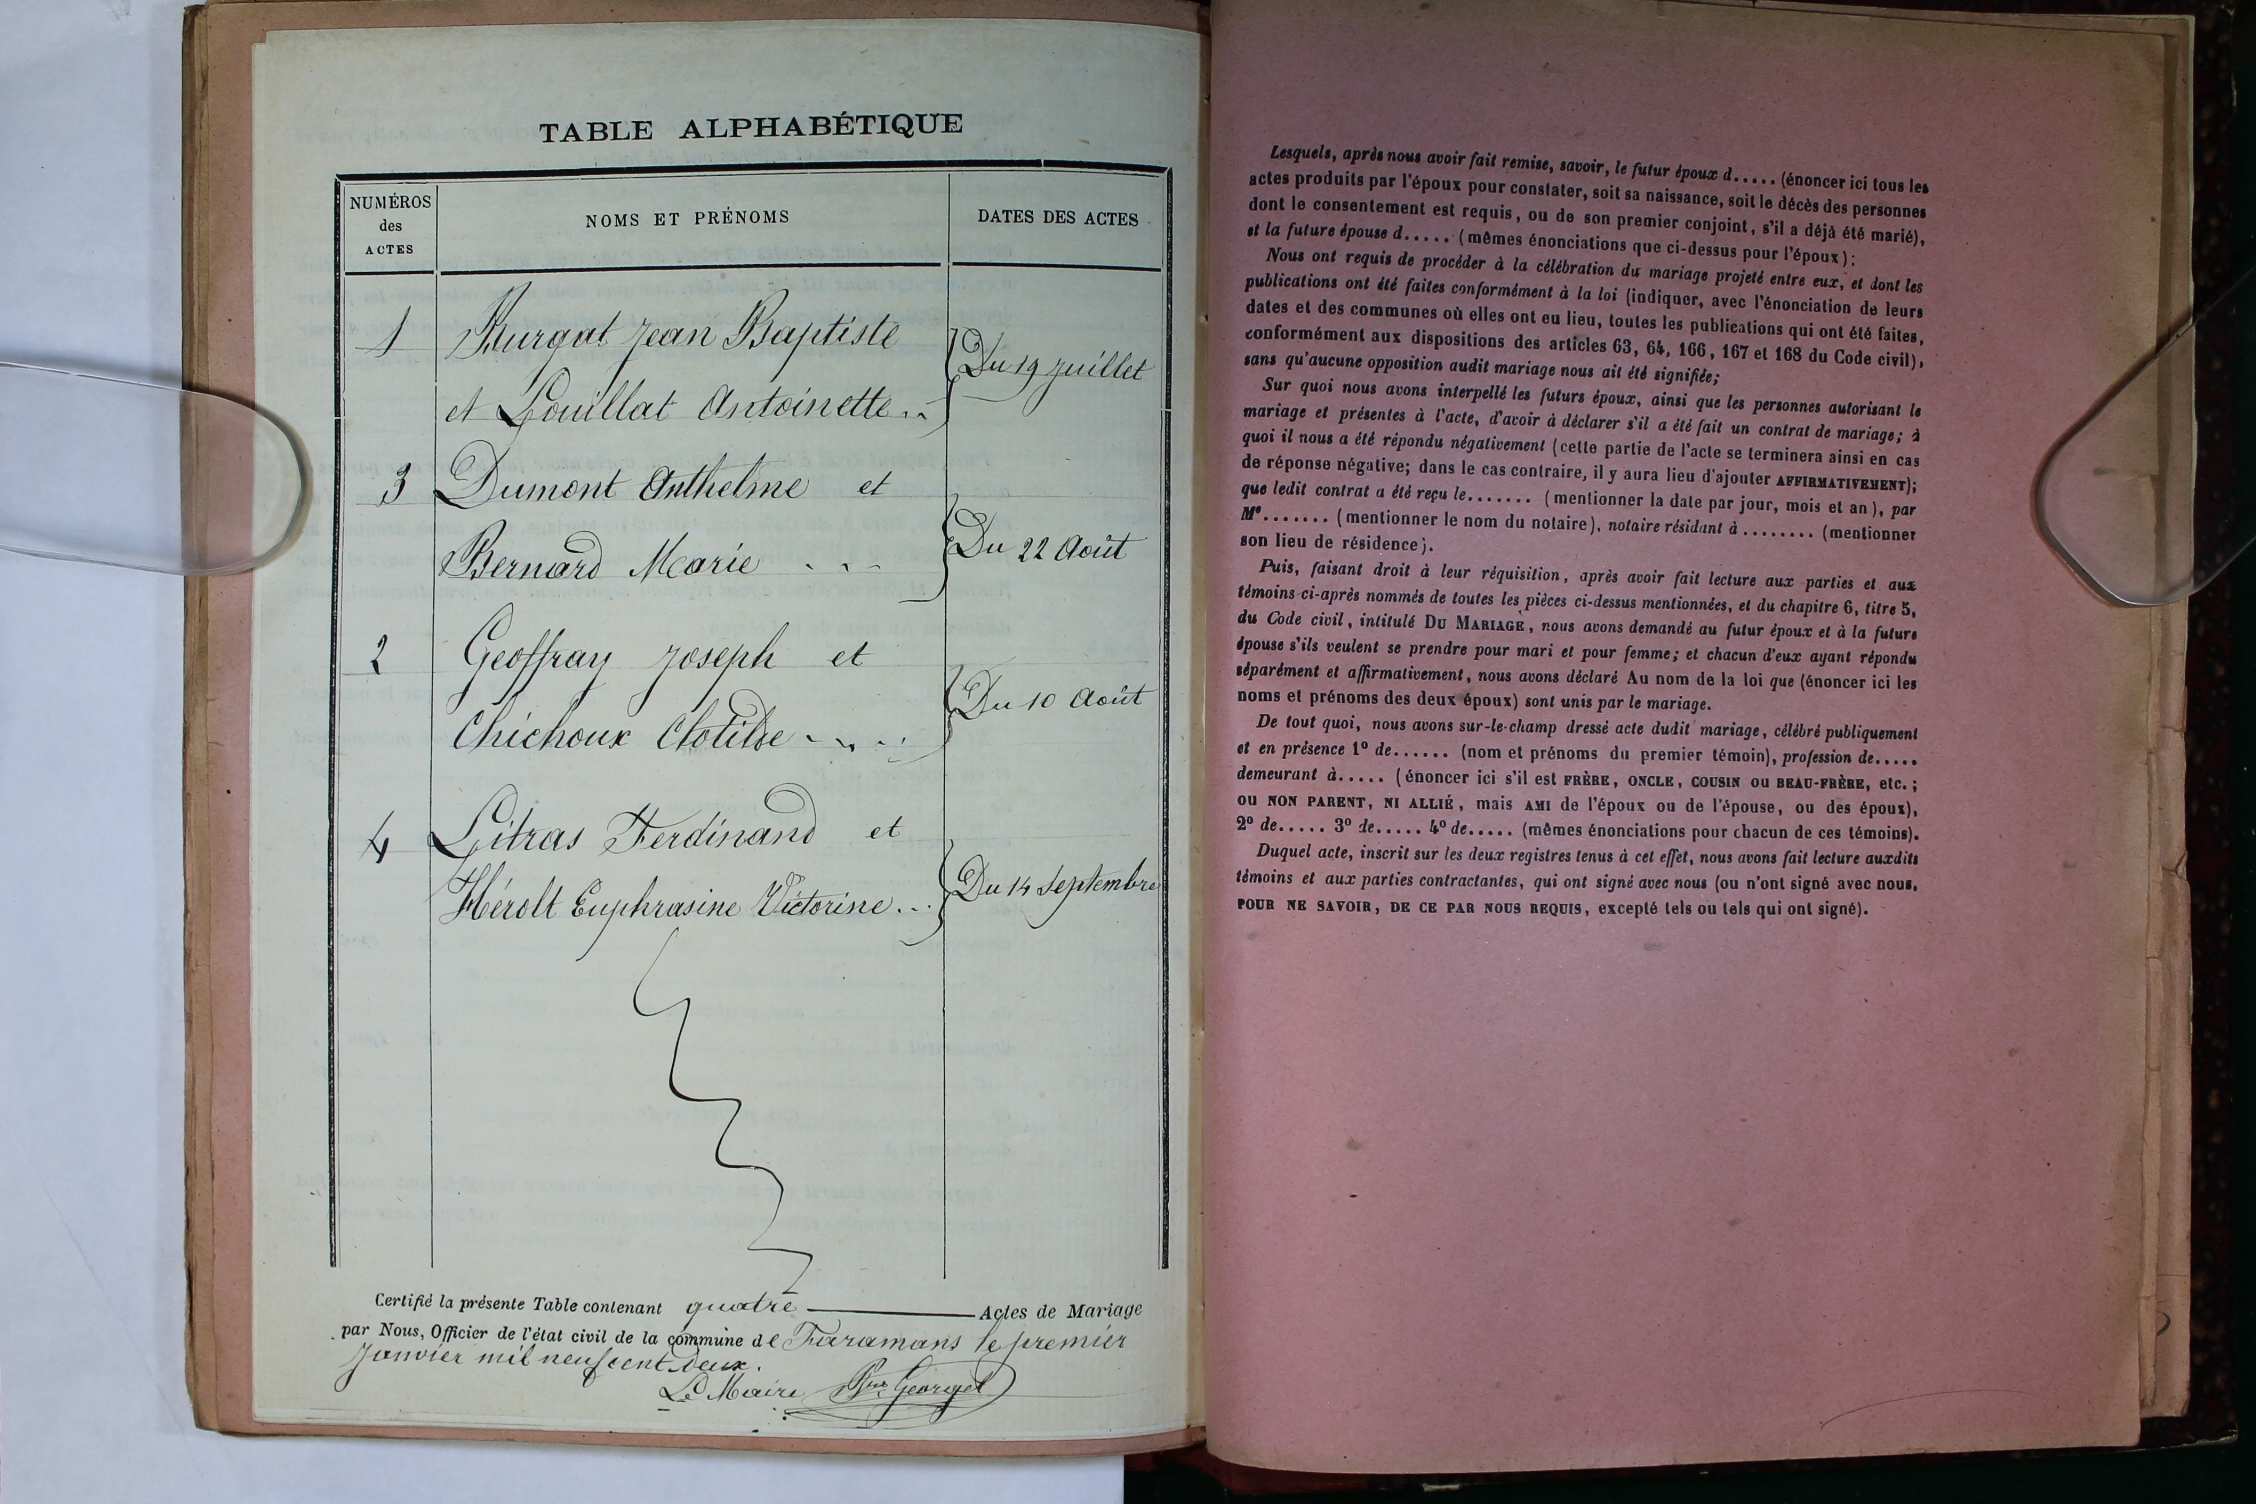 TABLE ALPHABÉTIQUE
NUMÉROS
des
ACTES
NOMS ET PRÉNOMS
DATES DES ACTES
1 Burgat Jean Baptiste
et Louillat Antoinette
Du 19 Juillet
3 Dumont Anthelme et
Bernard Marie
Du 22 Août
2 Geoffray Joseph et
Chichoux Clotilde
Du 10 Août
4 Litras Ferdinand et
Hérolt Euphrasine Victorine
Du 14 Septembre
Certifié la présente Table contenant quatre Actes de Mariage
par Nous, Officier de l'état civil de la commune de Faramans le premier
Janvier mil neuf cent deux.
Le Maire Georget
Lesquels, après nous avoir fait remise, savoir, le futur époux d..... (énoncer ici tous les
actes produits par l'époux pour constater, soit sa naissance, soit le décès des personnes
dont le consentement est requis, ou de son premier conjoint, s'il a déjà été marié),
et la future épouse d..... (mêmes énonciations que ci-dessus pour l'époux);
Nous ont requis de procéder à la célébration du mariage projeté entre eux, et dont les
publications ont été faites conformément à la loi (indiquer, avec l'énonciation de leurs
dates et des communes où elles ont eu lieu, toutes les publications qui ont été faites,
conformément aux dispositions des articles 63, 64, 166, 167 et 168 du Code civil),
sans qu'aucune opposition audit mariage nous ait été signifiée;
Sur quoi nous avons interpellé les futurs époux, ainsi que les personnes autorisant le
mariage et présentes à l'acte, d'avoir à déclarer s'il a été fait un contrat de mariage; à
quoi il nous a été répondu négativement (cette partie de l'acte se terminera ainsi en cas
de réponse négative; dans le cas contraire, il y aura lieu d'ajouter AFFIRMATIVEMENT);
que ledit contrat a été reçu le....... (mentionner la date par jour, mois et an), par
Me....... (mentionner le nom du notaire), notaire résidant à ........ (mentionner
son lieu de résidence).
Puis, faisant droit à leur réquisition, après avoir fait lecture aux parties et aux
témoins ci-après nommés de toutes les pièces ci-dessus mentionnées, et du chapitre 6, titre 5,
du Code civil, intitulé DU MARIAGE, nous avons demandé au futur époux et à la future
épouse s'ils veulent se prendre pour mari et pour femme; et chacun d'eux ayant répondu
séparément et affirmativement, nous avons déclaré Au nom de la loi que (énoncer ici les
noms et prénoms des deux époux) sont unis par le mariage.
De tout quoi, nous avons sur-le-champ dressé acte dudit mariage, célébré publiquement
et en présence 1º de...... (nom et prénoms du premier témoin), profession de.....
demeurant à..... (énoncer ici s'il est FRÈRE, ONCLE, COUSIN OU BEAU-FRÈRE, etc.;
OU NON PARENT, NI ALLIÉ, mais AMI de l'époux ou de l'épouse, ou des époux),
2º de..... 3º de..... 4º de..... (mêmes énonciations pour chacun de ces témoins).
Duquel acte, inscrit sur les deux registres tenus à cet effet, nous avons fait lecture auxdits
témoins et aux parties contractantes, qui ont signé avec nous (ou n'ont signé avec nous,
POUR NE SAVOIR, DE CE PAR NOUS REQUIS, excepté tels ou tels qui ont signé).